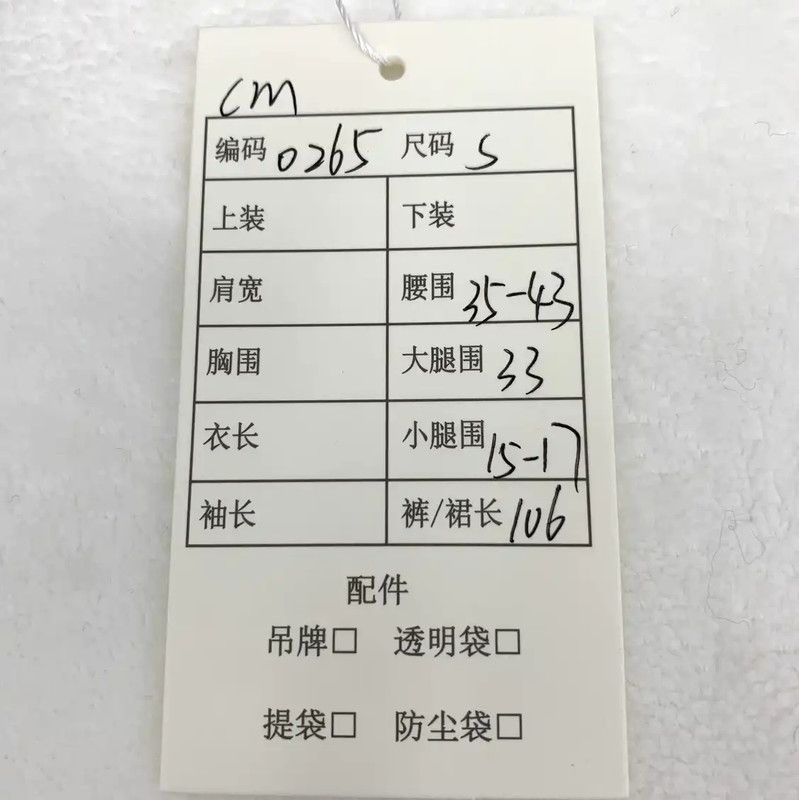 cm
编码 0265 尺码 S
上装 下装
肩宽 腰围 35-43
胸围 大腿围 33
衣长 小腿围 15-17
袖长 裤/裙长 106
配件
吊牌□ 透明袋□
提袋□ 防尘袋□